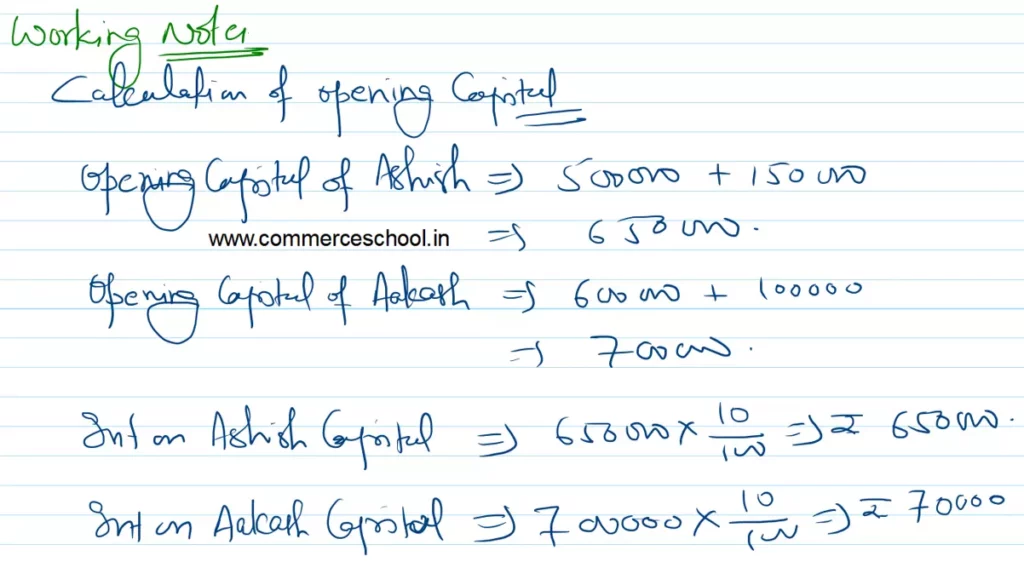 Working Notes
Calculation of opening Capital
Opening Capital of Ashish ⇒ 500000 + 150000
www.commerceschool.in ⇒ 650000.
Opening Capital of Aakash ⇒ 600000 + 100000
⇒ 700000.
Int on Ashish Capital ⇒ 650000 × 10/100 ⇒ ₹ 65000.
Int on Aakash Capital ⇒ 700000 × 10/100 ⇒ ₹ 70000